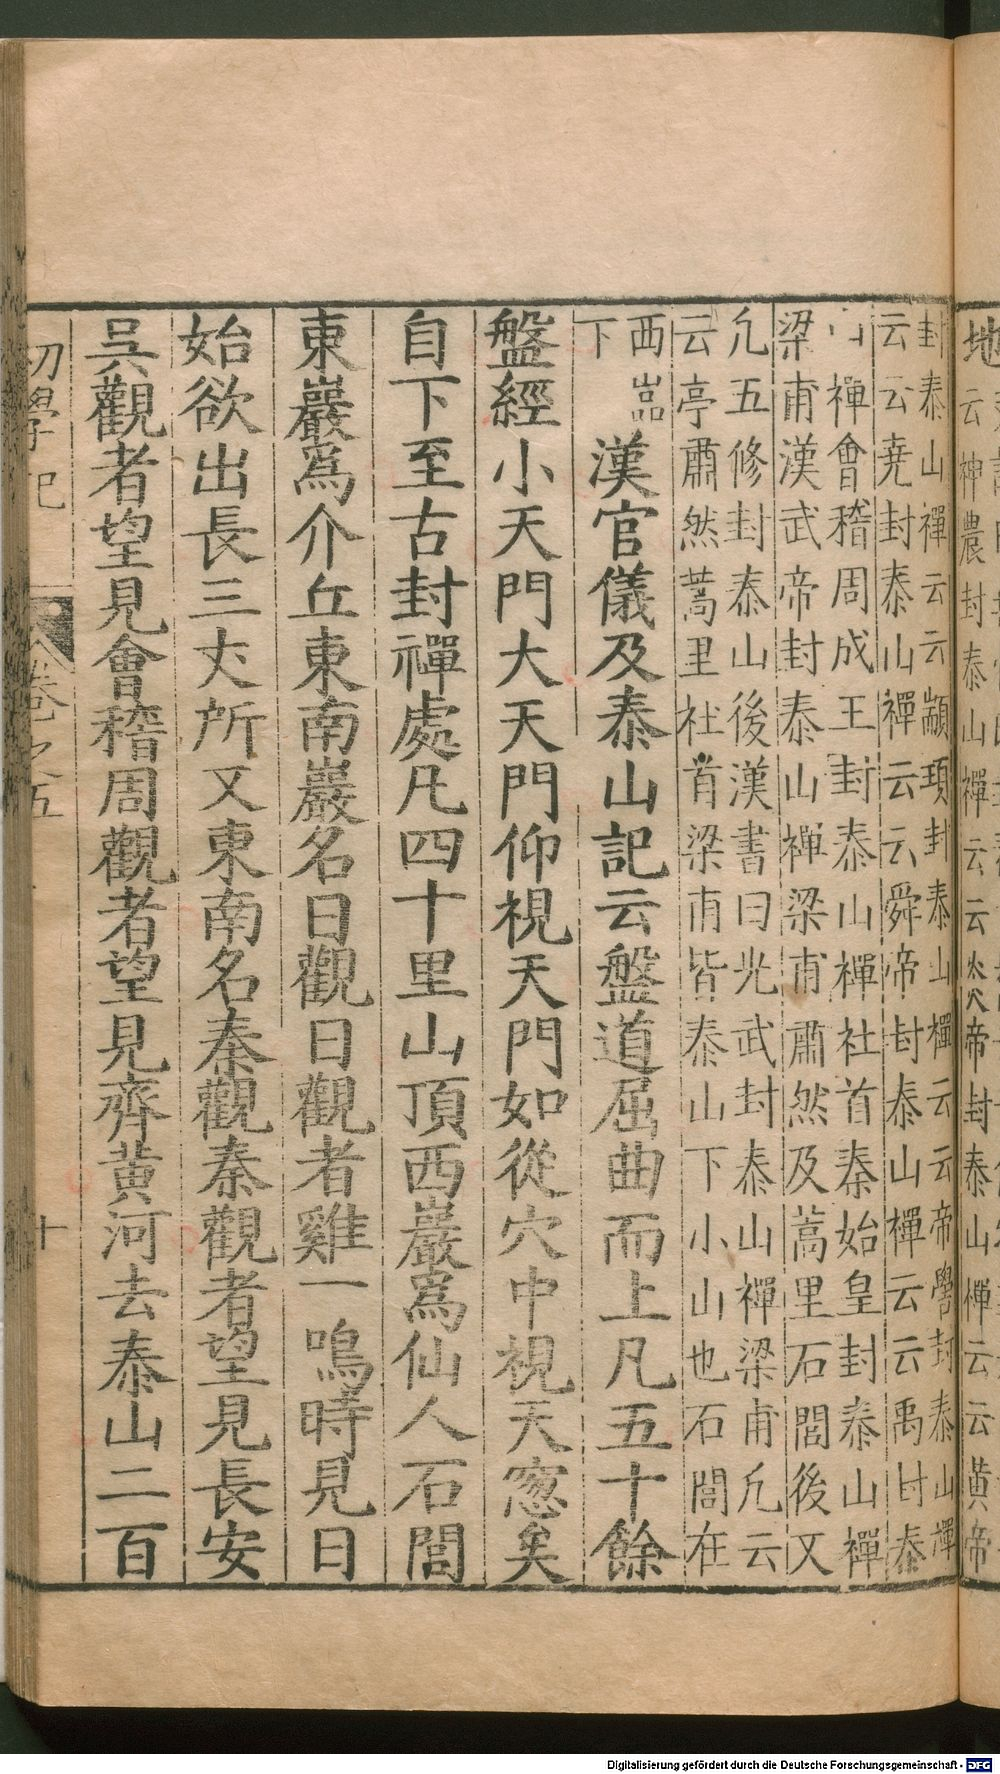 地云神農封泰山禪云云炎帝封泰山禪云云黃帝
封泰山禪云云顓頊封泰山禪云云帝嚳封泰山禪
云云堯封泰山禪云云舜帝封泰山禪云云禹封泰
山禪會稽周成王封泰山禪社首秦始皇封泰山禪
梁甫漢武帝封泰山禪梁甫肅然及蒿里石閭後又
凢五修封泰山後漢書曰光武封泰山禪梁甫凢云
云亭肅然蒿里社首梁甫皆泰山下小山也石閭在
西嵓
下
漢官儀及泰山記云盤道屈曲而上凡五十餘
盤經小天門大天門仰視天門如從穴中視天窓矣
自下至古封禪處凡四十里山頂西巖爲仙人石閭
東巖爲介丘東南巖名日觀日觀者雞一鳴時見日
始欲出長三丈所又東南名秦觀秦觀者望見長安
吳觀者望見會稽周觀者望見齊黃河去泰山二百
初學記 卷之五 十
Digitalisierung gefördert durch die Deutsche Forschungsgemeinschaft - DFG